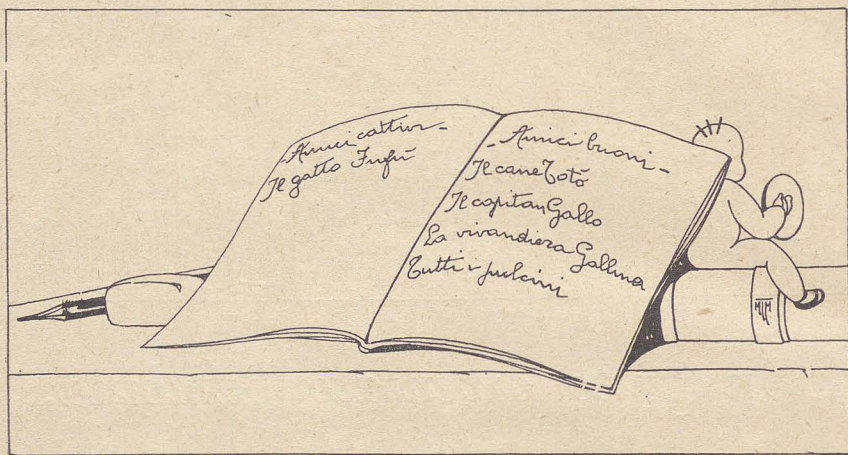 - Amici cattivi -
Il gatto Fufù
- Amici buoni -
Il cane Totò
Il capitan Gallo
La vivandiera Gallina
Tutti i pulcini
MLM